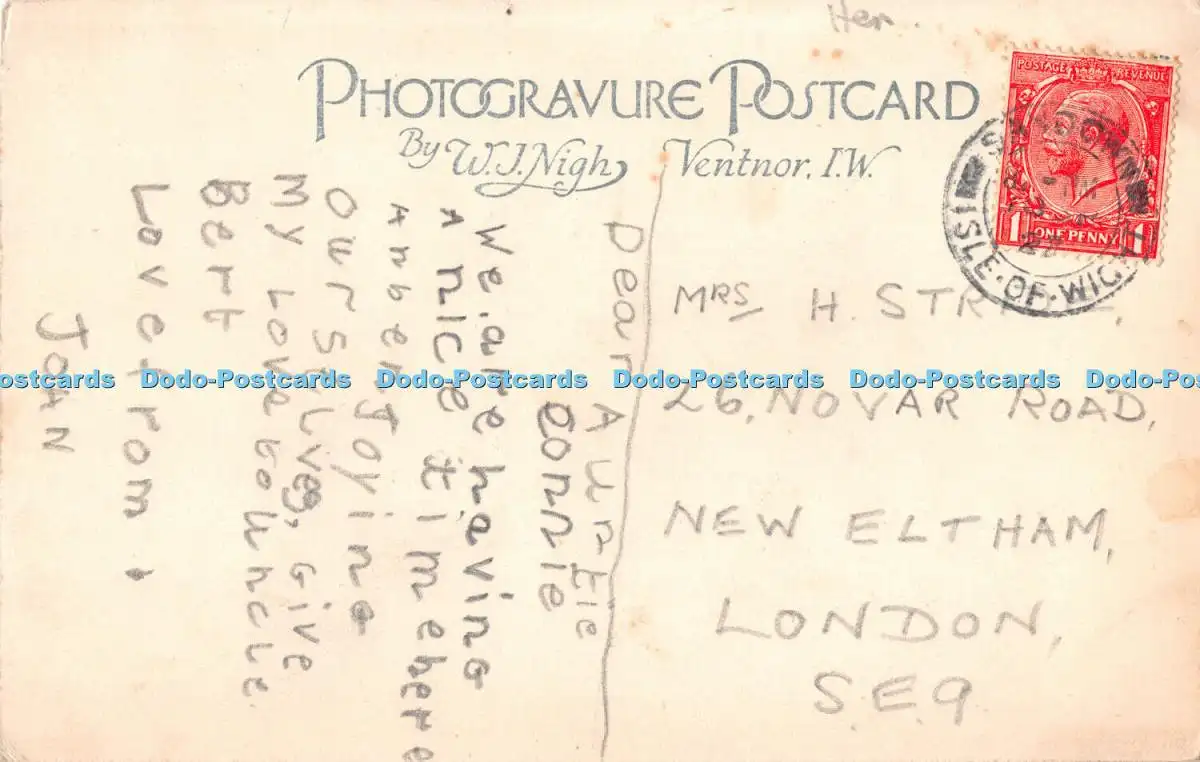 Her.
PHOTOGRAVURE POSTCARD
By W.J. Nigh, Ventnor, I.W.
POSTAGE REVENUE
1 ONE PENNY 1
ISLE·OF·WIGHT
Dear Auntie
Connie
We are having
A nice time here
An be n Joying
Ourselves, Give
My Love to uncle
Bert
Love from
JOAN
MRS H.
26, NOVAR ROAD,
NEW ELTHAM,
LONDON,
S.E.9
Dodo-Postcards Dodo-Postcards Dodo-Postcards Dodo-Postcards Dodo-Postcards